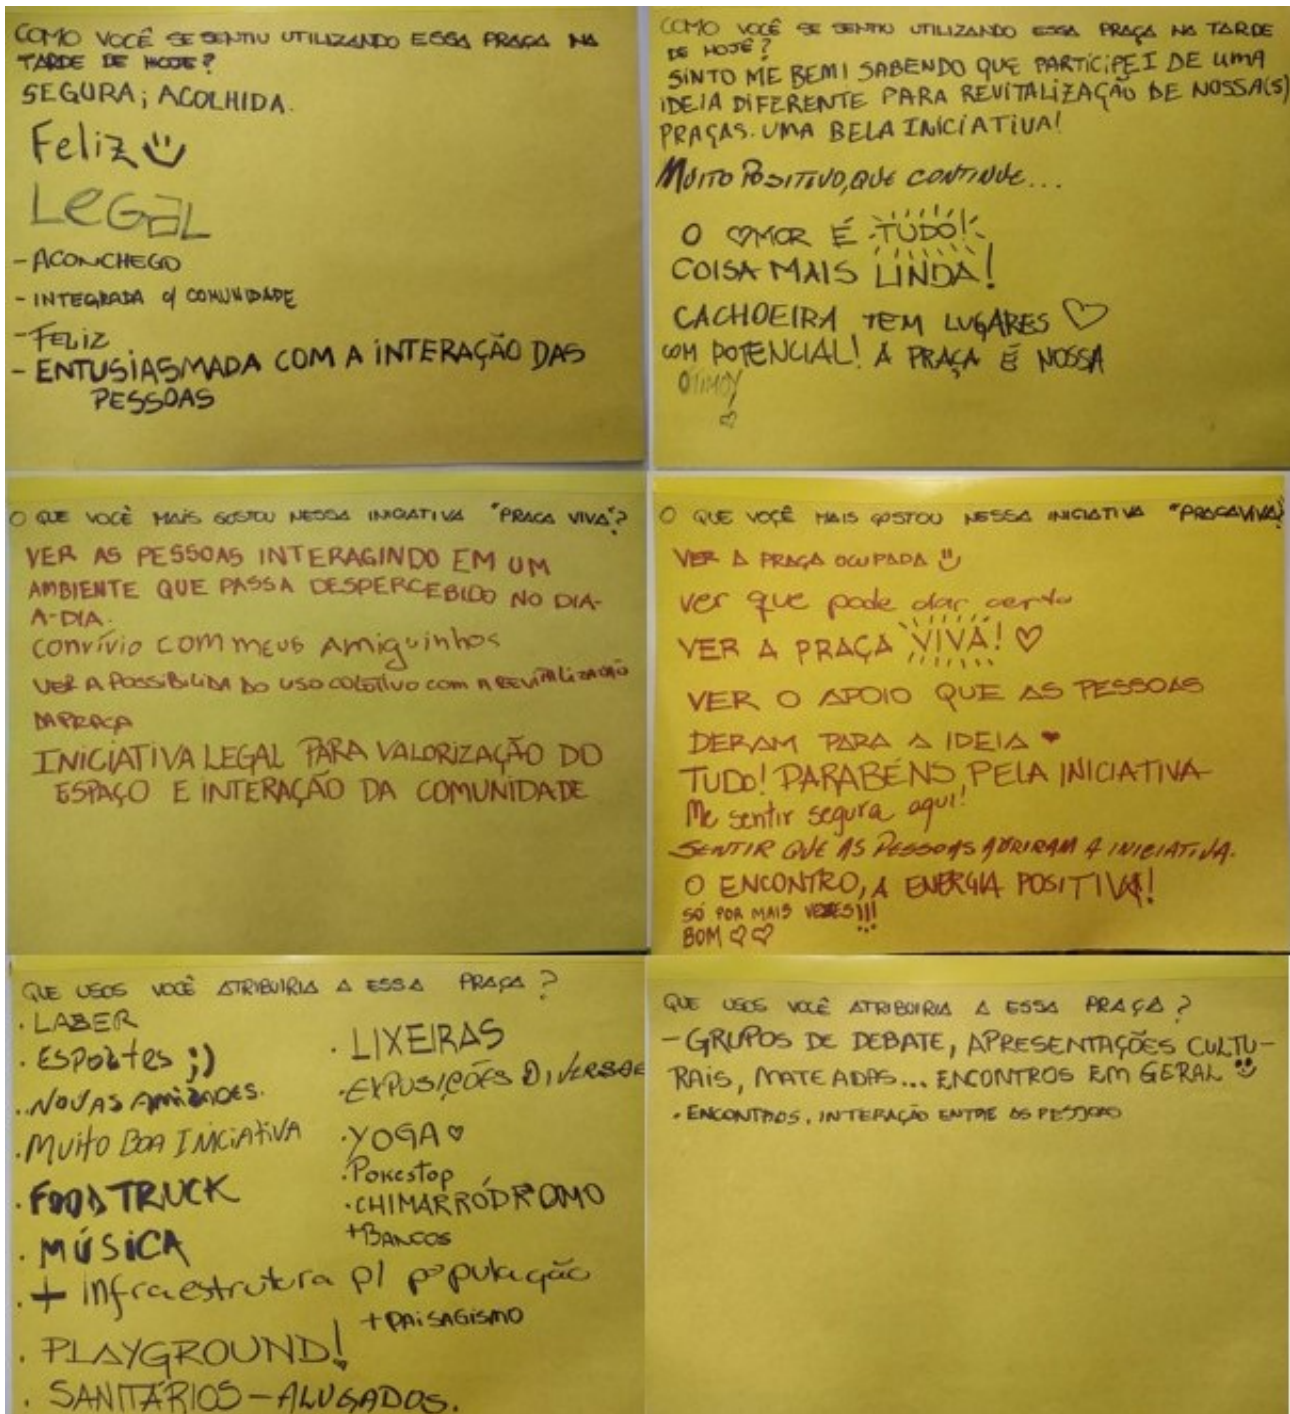 COMO VOCÊ SE SENTIU UTILIZANDO ESSA PRAÇA NA
TARDE DE HOJE?
SEGURA; ACOLHIDA.
Feliz
LEGAL
- ACONCHEGO
- INTEGRADA C/ COMUNIDADE
- FELIZ
- ENTUSIASMADA COM A INTERAÇÃO DAS
PESSOAS
COMO VOCÊ SE SENTIU UTILIZANDO ESSA PRAÇA NA TARDE
DE HOJE?
SINTO ME BEM! SABENDO QUE PARTICIPEI DE UMA
IDEIA DIFERENTE PARA REVITALIZAÇÃO DE NOSSA(S)
PRAÇAS. UMA BELA INICIATIVA!
MUITO POSITIVO, QUE CONTINUE...
O ♡MOR É TUDO!
COISA MAIS LINDA!
CACHOEIRA TEM LUGARES ♡
COM POTENCIAL! A PRAÇA É NOSSA
OTIMO
O QUE VOCÊ MAIS GOSTOU NESSA INICIATIVA "PRACA VIVA"?
VER AS PESSOAS INTERAGINDO EM UM
AMBIENTE QUE PASSA DESPERCEBIDO NO DIA-
A-DIA.
convívio com meus Amiguinhos
VER A POSSIBILIDA DO USO COLETIVO COM A REVITALIZAÇÃO
DA PRAÇA
INICIATIVA LEGAL PARA VALORIZAÇÃO DO
ESPAÇO E INTERAÇÃO DA COMUNIDADE
O QUE VOÇÊ MAIS GOSTOU NESSA INICIATIVA "PRACAVIVA?
VER A PRAÇA OCUPADA
ver que pode dar certo
VER A PRAÇA VIVA! ♡
VER O APOIO QUE AS PESSOAS
DERAM PARA A IDEIA ♥
TUDO! PARABÉNS PELA INICIATIVA
Me sentir segura aqui!
SENTIR QUE AS PESSOAS ADRIRAM A INICIATIVA.
O ENCONTRO, A ENERGIA POSITIVA!
SÓ POR MAIS VEZES!!!
BOM ♡♡
QUE USOS VOCÊ ATRIBUIRIA A ESSA PRAÇA?
· LAZER
· ESPORTES ;)
· NOVAS Amizades.
· MUITO BOA INICIATIVA
· FOOD TRUCK
· MÚSICA
· + infraestrutura p/ população
+ PAISAGISMO
· PLAYGROUND!
· SANITÁRIOS - ALUGADOS.
· LIXEIRAS
· EXPOSIÇÕES DIVERSAS
· YOGA ♡
· Pokestop
· CHIMARRÓDROMO
+ BANCOS
QUE USOS VOCÊ ATRIBUIRIA A ESSA PRAÇA?
- GRUPOS DE DEBATE, APRESENTAÇÕES CULTU-
RAIS, MATEADAS... ENCONTROS EM GERAL
· ENCONTROS, INTERAÇÃO ENTRE AS PESSOAS